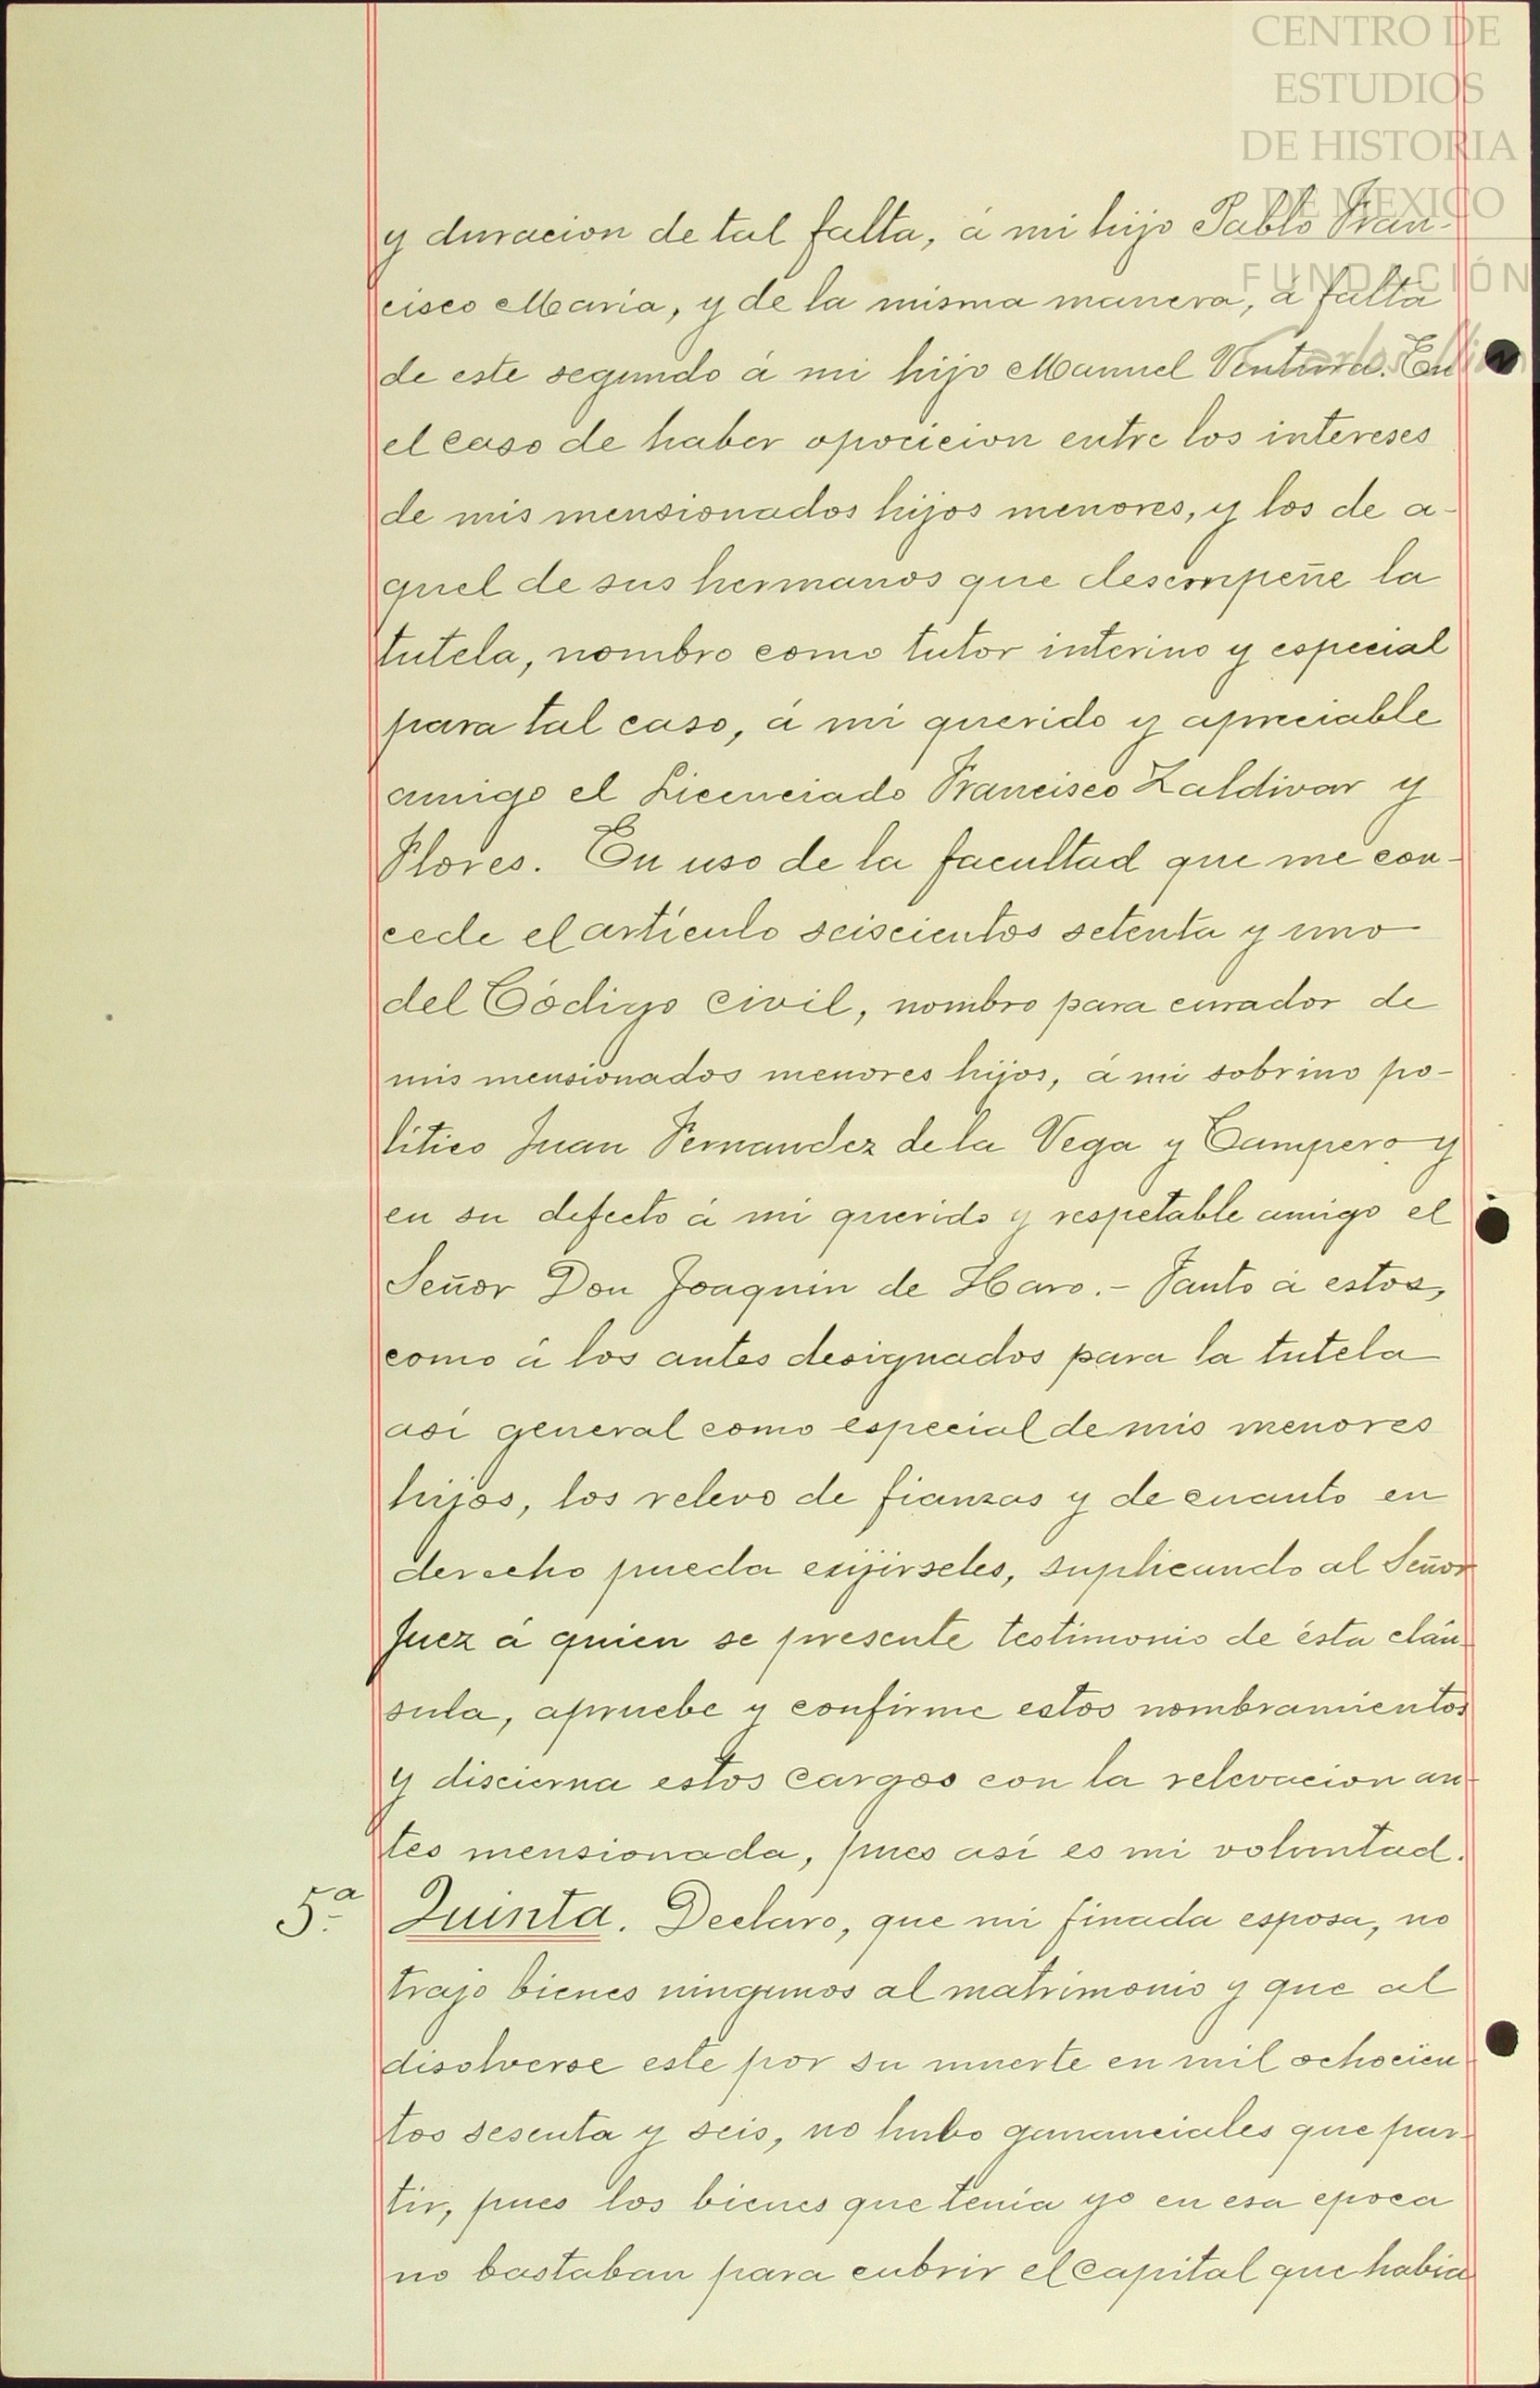 CENTRO DE
ESTUDIOS
DE HISTORIA
DE MEXICO
FUNDACIÓN
Carlos Slim
y duracion de tal falta, á mi hijo Pablo Fran-
cisco Maria, y de la misma manera, á falta
de este segundo á mi hijo Manuel Ventura. En
el caso de haber opocicion entre los intereses
de mis mensionados hijos menores, y los de a-
quel de sus hermanos que desempeñe la
tutela, nombro como tutor interino y especial
para tal caso, á mi querido y apreciable
amigo el Licenciado Francisco Zaldivar y
Flores. En uso de la facultad que me con-
cede el artículo seiscientos setenta y uno
del Código civil, nombro para curador de
mis mensionados menores hijos, á mi sobrino po-
litico Juan Fernandez de la Vega y Campero y
en su defecto á mi querido y respetable amigo el
Señor Don Joaquin de Haro.- Tanto á estos,
como á los antes designados para la tutela
así general como especial de mis menores
hijos, los relevo de fianzas y de cuanto en
derecho pueda exijirseles, suplicando al Señor
Juez á quien se presente testimonio de ésta cláu-
sula, apruebe y confirme estos nombramientos
y discierna estos cargos con la relevacion an-
tes mensionada, pues así es mi voluntad.
5.ª Quinta. Declaro, que mi finada esposa, no
trajo bienes ningunos al matrimonio y que al
disolverse este por su muerte en mil ochocien-
tos sesenta y seis, no hubo gananciales que par-
tir, pues los bienes que tenía yo en esa epoca
no bastaban para cubrir el capital que habia